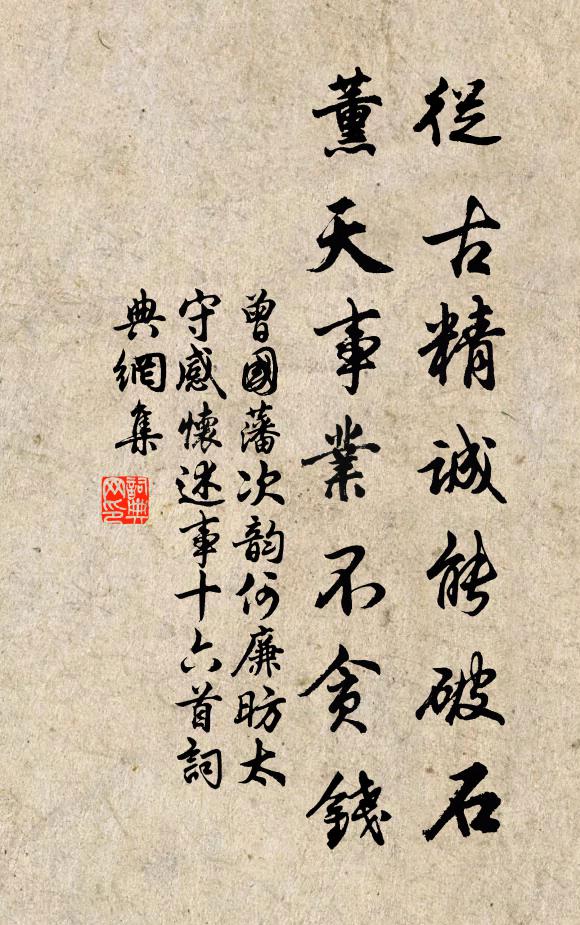 從古精誠能破石
薰天事業不貪錢
曾國藩次韵何廉昉太
守感懷述事十六首詞
典網集
詞典
网印